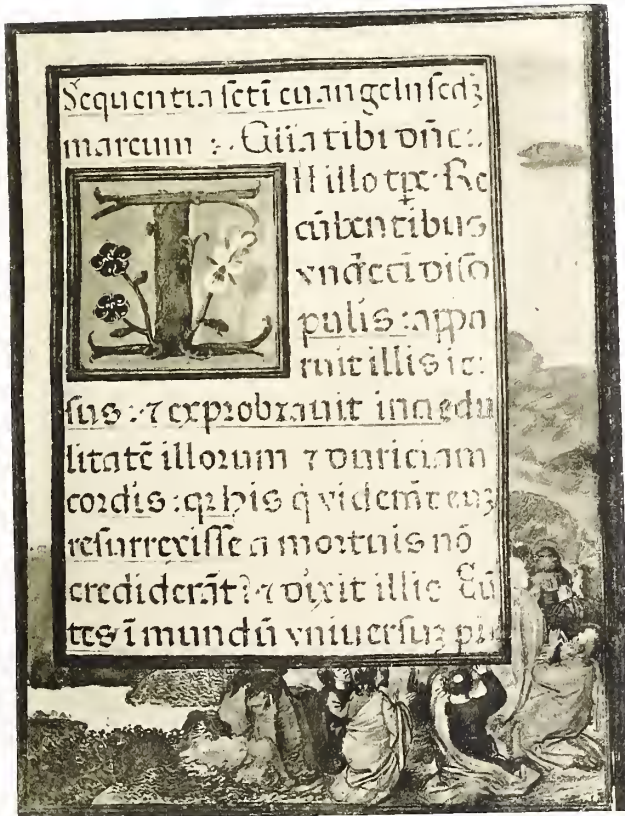 Sequentia scti euangelii scdꝫ
marcum :. Gl̃ia tibi dñe:.
IN illo tp̃r: Re
cũbentibus
vndeci᷑ disci
pulis : appa
ruit illis ie:
sus :. ⁊ exprobrauit incredu
litatẽ illorum ⁊ duriciam
cordis : qr his q̇ viderãt euꝫ
resurrexisse a mortuis nõ
crediderãt? ⁊ dixit illis Eũ
tes ĩ mundũ vniuersuꝫ pr̃